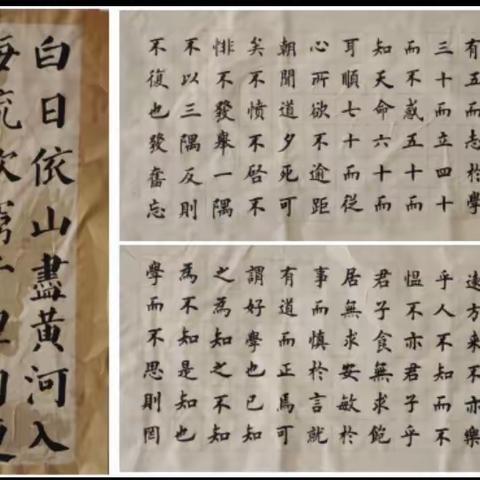 白日依山盡黃河入
海流欲窮千里目更
有五而志於學
三十而立四十
而不惑五十而
知天命六十而
耳順七十而從
心所欲不逾距
朝聞道夕死可
矣不憤不啓不
悱不發舉一隅
不以三隅反則
不復也發奮忘
遠方來不亦樂
乎人不知而不
愠不亦君子乎
君子食無求飽
居無求安敏於
事而慎於言就
有道而正焉可
謂好學也已知
之為知之不知
為不知是知也
學而不思則罔